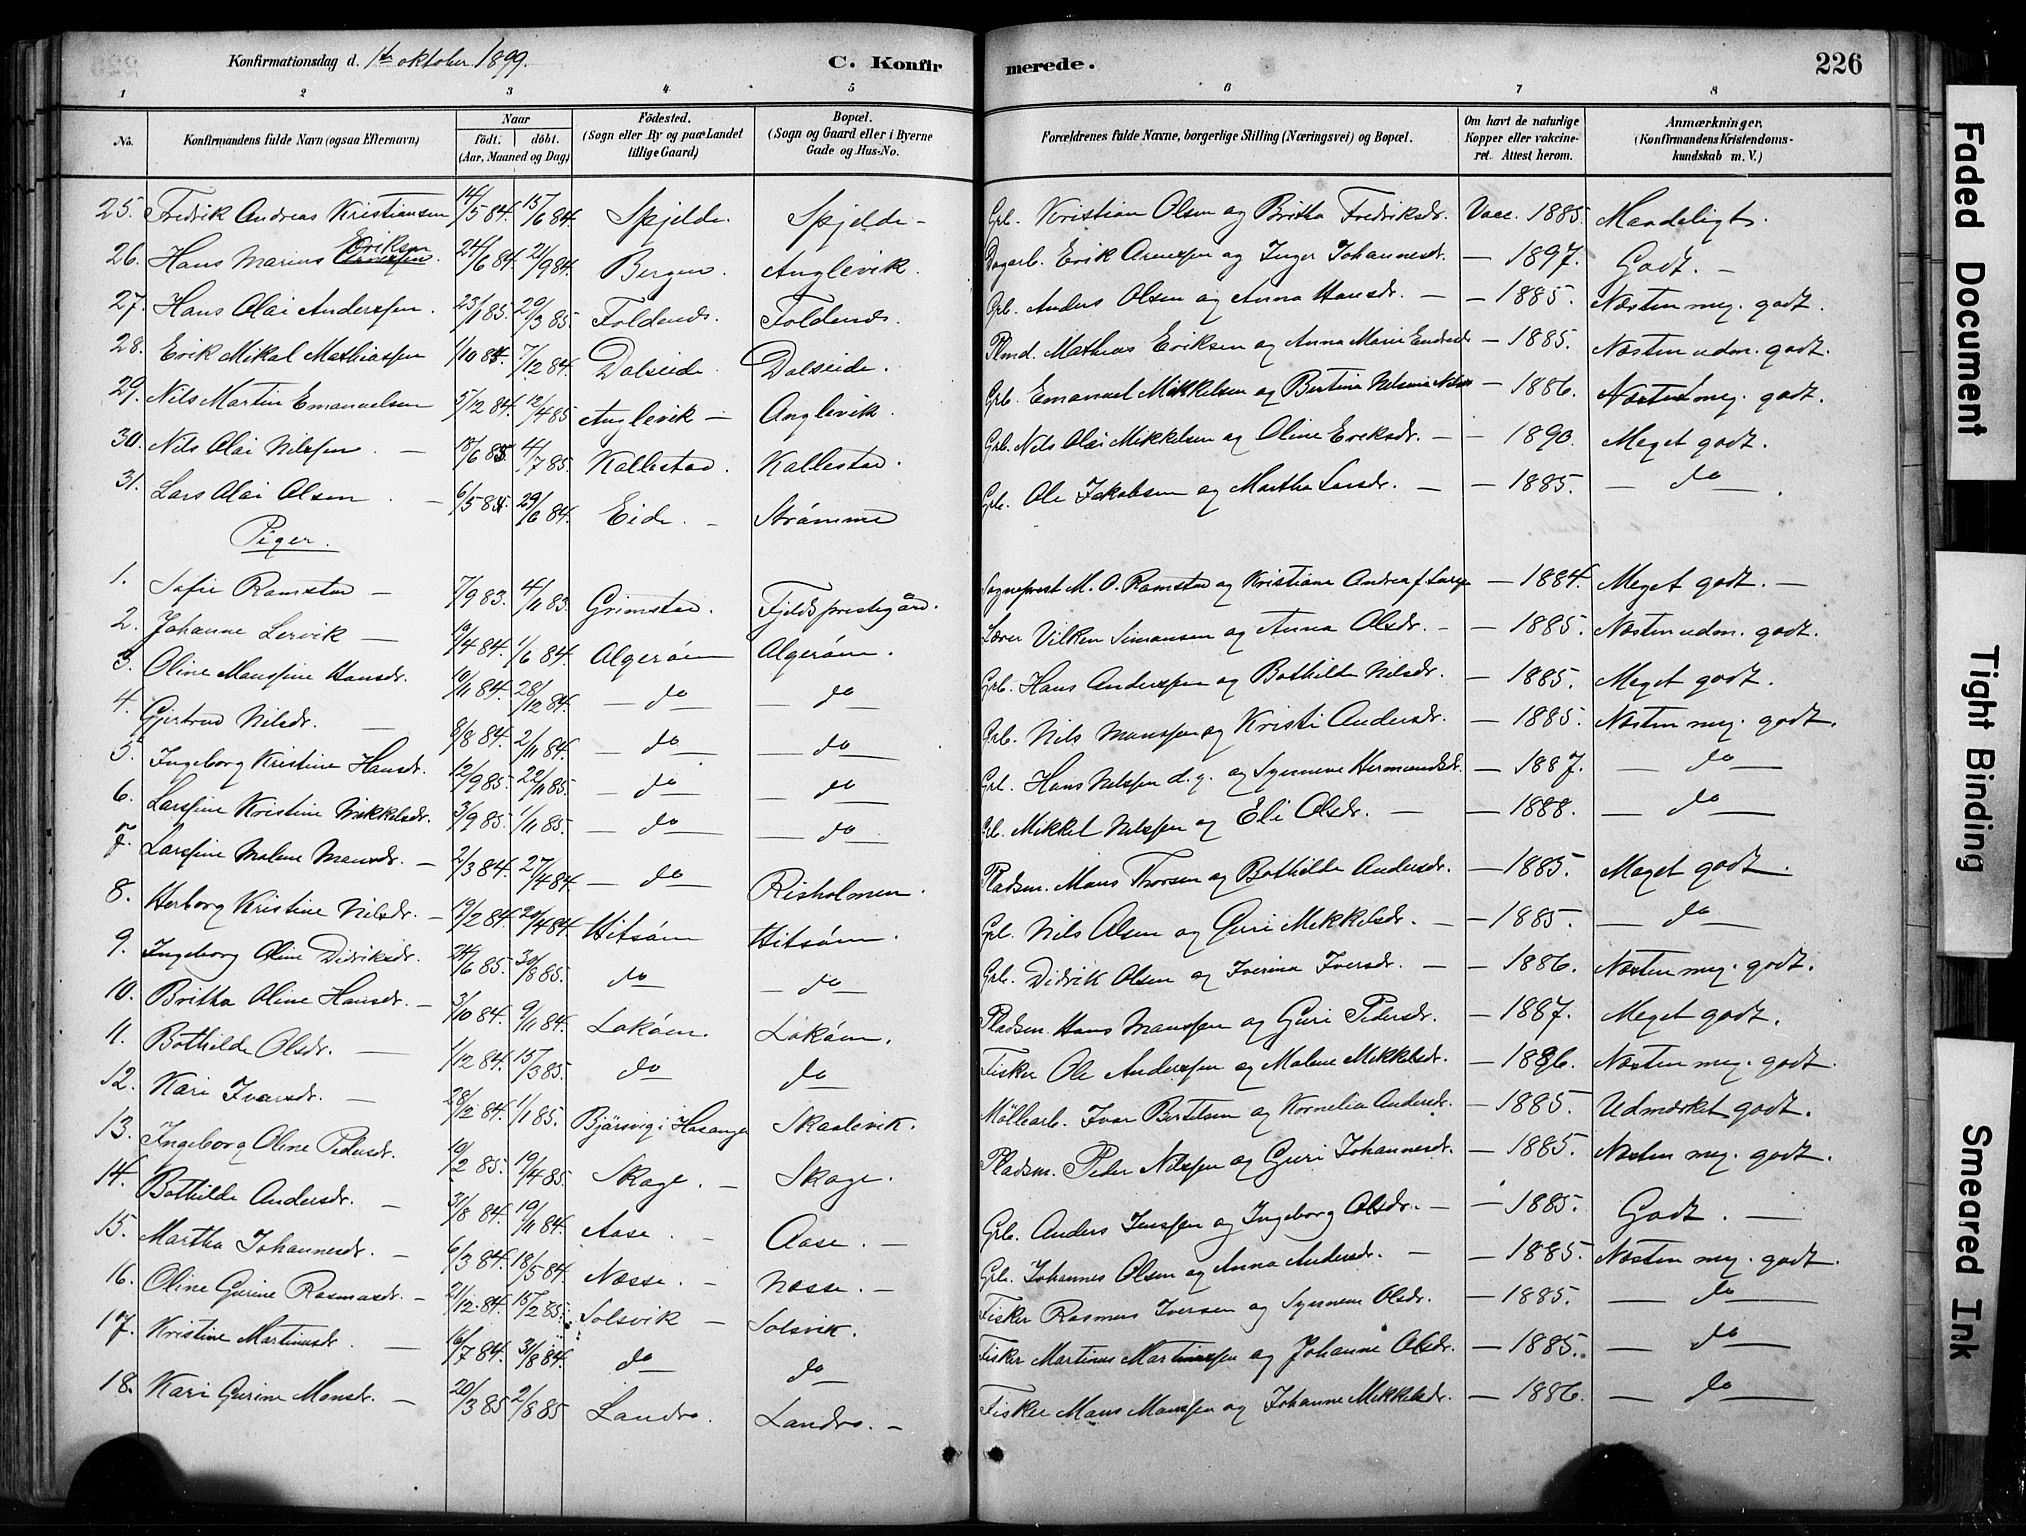 Konfirmationsdag d. 1ste oktober 1899. C. Konfirmerede. 226
1 2 3 4 5 6 7 8
No. Konfirmandens fulde Navn (ogsaa Efternavn) Naar födt. döbt. (Aar, Maaned og Dag) Födested. (Sogn eller By og paa Landet tillige Gaard) Bopæl. (Sogn og Gaard eller i Byerne Gade og Hus-No. Forældrenes fulde Navne, borgerlige Stilling (Næringsvei) og Bopæl. Om havt de naturlige Kopper eller vakcineret. Attest herom. Anmærkninger, (Konfirmandens Kristendomskundskab m. V.)
25. Fredrik Andreas Kristiansen 14/5 84. 15/6 84. Spjelde. Spjelde - Grb. Kristian Olsen og Britha Fredriksdr. Vacc. 1885 Mandeligt.
26. Hans Marius Eriksen 24/6 84. 21/9 84. Bergen. Anglevik. Dagarb. Erik Arnessen og Inger Johannesdr. - 1897. Godt. -
27. Hans Olai Anderssen. 23/1 85. 29/3 85. Foldenes. Foldenes. Grb. Anders Olsen og Anna Hansdr. - - 1885. Næsten meg. godt.
28. Erik Mikal Mathiassen 1/10 84. 7/12 84. Dalseide. Dalseide. Plmd. Mathias Eriksen og Anna Marie - 1885. Næsten udm. godt.
29. Nils Martin Emanuelsen 5/12 84. 12/4 85 Anglevik - Anglevik. Grb. Emanuel Mikkelsen og Bertine Nilsine - 1886. Næsten meg. godt.
30. Nils Olai Nilssen. - 18/6 85. 4/7 85. Kallestad. Kallestad. Grb. Nils Olai Mikkelsen og Oline Eriksdr. - - 1890. Meget godt.
31. Lars Olai Olsen. - 6/5 84 29/6 84. Eide. - Strømme Grb. Ole Jakobsen og Martha Larsdr. - - 1885. - do -
Piger.
1. Sofie Ramstad - 7/9 83. 4/11 83. Grimstad. Fjelds prestegård. Sogneprest M. O. Ramstad og Kristiane Andrea f. - 1884. Meget godt. -
2. Johanne Lervik - 19/4 84. 1/6 84. Algerøen Algerøen. Lærer Vilken Simonsen og Anna Olsdr. - - 1885. Næsten udm. godt.
3. Oline Monssine Hansdr. 10/11 84. 28/12 84. - do - - do - Grb. Hans Anderssen og Bothilde Nilsdr. - 1885. Meget godt.
4. Gjertrud Nilsdr. - 8/8 84. 2/11 84. - do - - do - Grb. Nils Monssen og Kristi Andersdr. - 1885. Næsten meg. godt.
5. Ingeborg Kristine Hansdr. 12/9 85. 22/11 85. - do - - do - Grb. Hans Nilssen d. y. og Synneve Hermundsdr. - 1887. - do -
6. Larssine Kristine Mikkelsdr. 3/9 85. 1/11 85. - do - - do - Grb. Mikkel Nilssen og Eli Olsdr. - - 1888. - do -
7. Larssine Malene Monsdr. - 2/3 84. 27/4 84. - do - Risholmen. Pladsm. Mons Thorsen og Bothilde Andersdr. - 1885. Meget godt.
8. Herborg Kristine Nilsdr. - 19/2 84. 20/4 84. Hitsøen Hitsøen. Grb. Nils Olsen og Guri Mikkelsdr. - - 1885. - do -
9. Ingeborg Oline Didriksdr. 24/6 85. 30/8 85. do - do - Grb. Didrik Olsen og Iverina Iversdr. - - 1886. Næsten meg. godt.
10. Britha Oline Hansdr. - 3/10 84. 9/11 84. Lokøen. Lokøen. Pladsm. Hans Monssen og Guri Pedersdr. - 1887. Meget godt.
11. Bothilde Olsdr. - 1/12 84. 15/3 85. do do Fisker Ole Anderssen og Malene Mikkelsdr. - 1886. Næsten meg. godt.
12. Kari Ivarsdr. - 28/12 84. 1/1 85. Bjørsvig i Hosanger Skaalevik. Møllearb. Ivar Bertelsen og Kornelia Andersdr. - 1885. Udmærket godt.
13. Ingeborg Oline Pedersdr. 10/2 85. 19/4 85. Skage. - Skage. Pladsm. Peder Nilssen og Guri Johannesdr. - 1885. Næsten meg. godt.
14. Bothilde Andersdr. - 31/8 84. 19/11 84. Aase. - Aase. - Grb. Anders Jenssen og Ingeborg Olsdr. - - 1885. Godt. -
15. Martha Johannesdr. - 6/3 84. 18/5 84. Næsse. - Næsse. - Grb. Johannes Olsen og Anna Andersdr. - - 1885. Næsten meg. godt.
16. Oline Gurine Rasmusdr. - 21/12 84. 15/2 85. Solsvik - Solsvik. Fisker Rasmus Iversen og Synneve Olsdr. - 1885. - do -
17. Kristine Martinusdr. - 16/7 84. 31/8 84. do do Fisker Martinus Martinussen og Johanne Olsdr. - 1885. - do -
18. Kari Gurine Monsdr. - 20/3 85 2/8 85 Landro. Landro. - Fisker Mons Monssen og Johanne Mikkelsdr. - 1886. - do -
Faded Document
Tight Binding
Smeared Ink